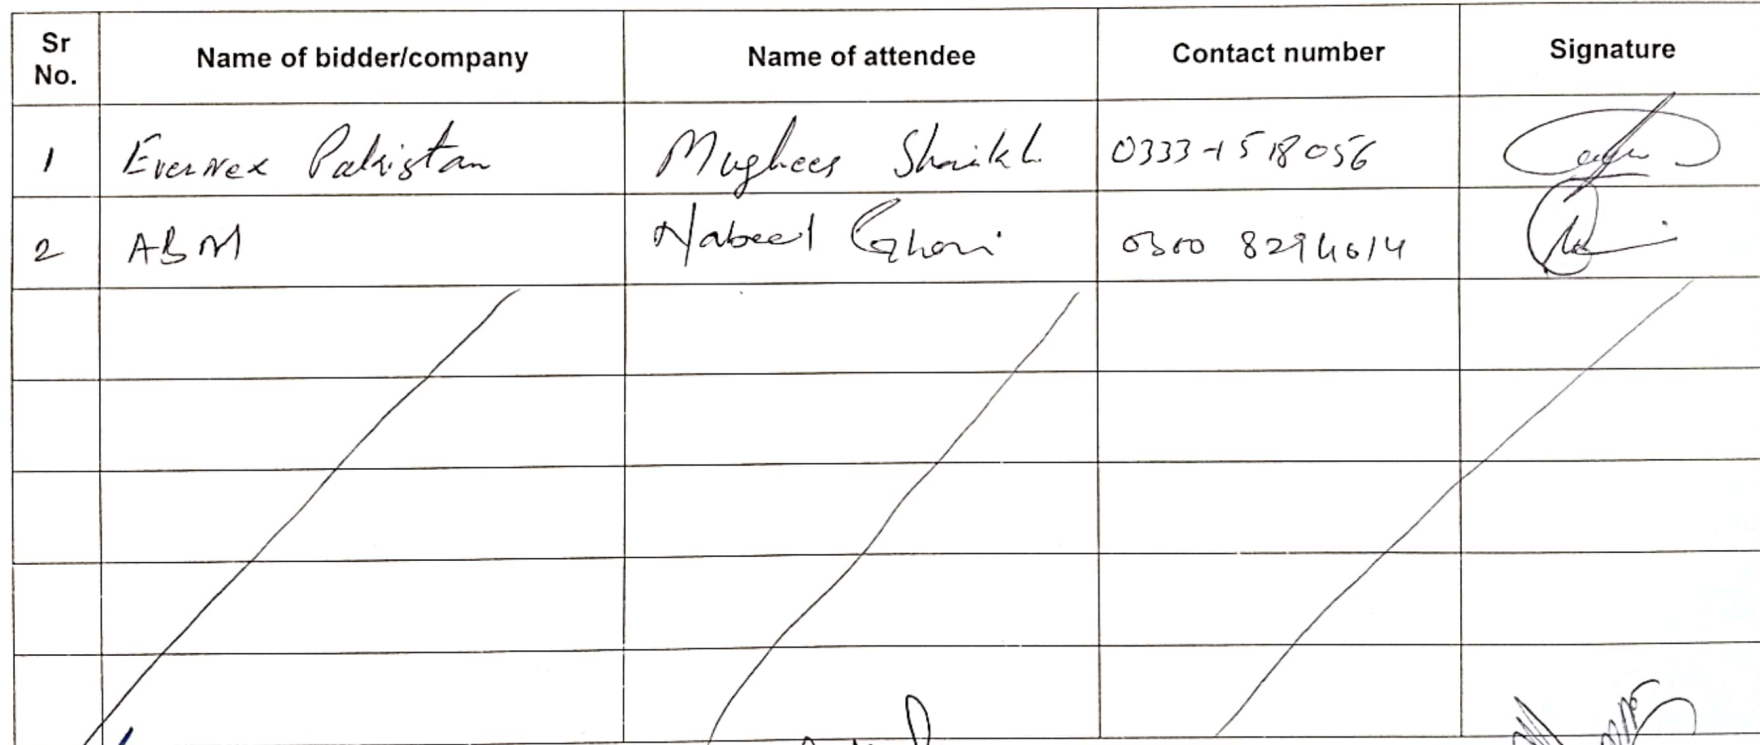 Sr No. Name of bidder/company Name of attendee Contact number Signature
1 Evernex Pakistan Mughees Shaikh 0333-1518056
2 ABM Nabeel Ghani 0300 8294614